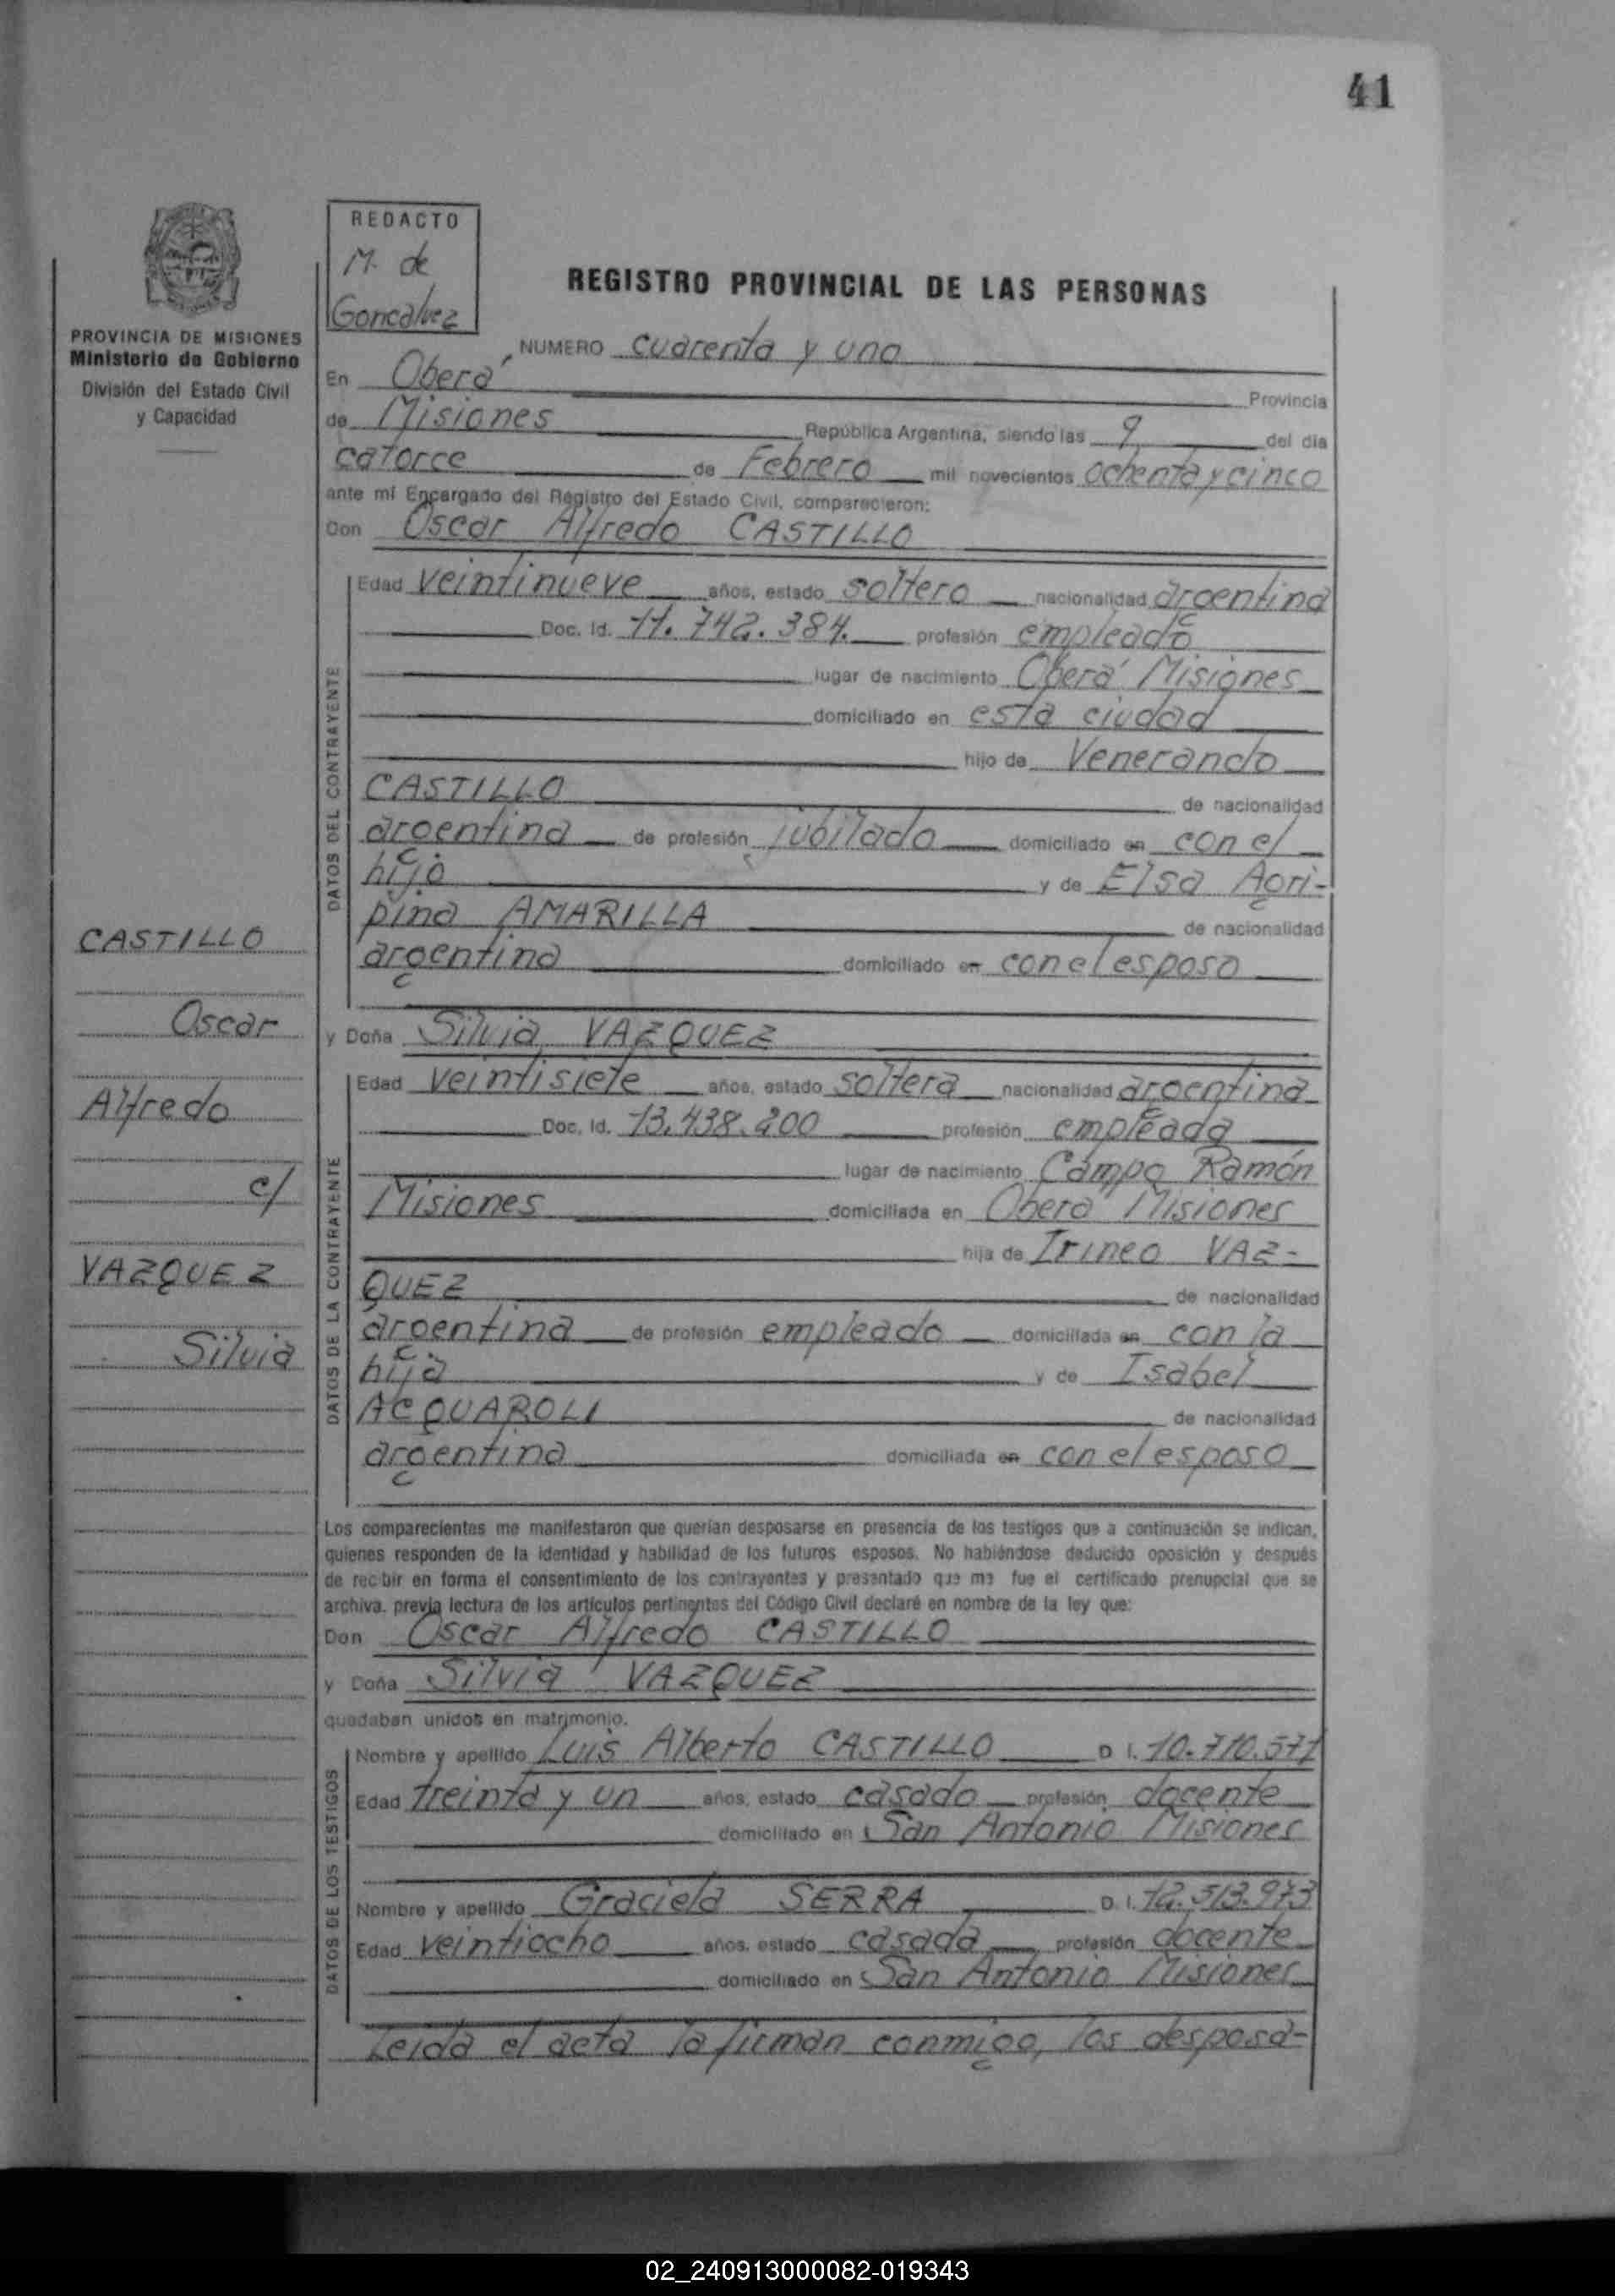 41
REDACTO
M. de
Goncalvez
REGISTRO PROVINCIAL DE LAS PERSONAS
PROVINCIA DE MISIONES
Ministerio de Gobierno
División del Estado Civil
y Capacidad
NUMERO cuarenta y uno
En Oberá
Provincia
de Misiones República Argentina, siendo las 9 del día
catorce de Febrero mil novecientos ochenta y cinco
ante mí Encargado del Registro del Estado Civil, comparecieron:
Don Oscar Alfredo CASTILLO
DATOS DEL CONTRAYENTE
Edad veintinueve años, estado soltero nacionalidad argentina
Doc. Id. 11.742.384. profesión empleado
lugar de nacimiento Oberá Misiones
domiciliado en esta ciudad
hijo de Venerando
CASTILLO de nacionalidad
argentina de profesión jubilado domiciliado en con el
hijo y de Elsa Agri-
pina AMARILLA de nacionalidad
argentina domiciliado en con el esposo
y Doña Silvia VAZQUEZ
DATOS DE LA CONTRAYENTE
Edad veintisiete años, estado soltera nacionalidad argentina
Doc. Id. 13.438.200 profesión empleada
lugar de nacimiento Campo Ramón
Misiones domiciliada en Oberá Misiones
hija de Irineo VAZ-
QUEZ de nacionalidad
argentina de profesión empleado domiciliada en con la
hija y de Isabel
ACQUAROLI de nacionalidad
argentina domiciliada en con el esposo
CASTILLO
Oscar
Alfredo
c/
VAZQUEZ
Silvia
Los comparecientes me manifestaron que querían desposarse en presencia de los testigos que a continuación se indican,
quienes responden de la identidad y habilidad de los futuros esposos. No habiéndose deducido oposición y después
de recibir en forma el consentimiento de los contrayentes y presentado que me fue el certificado prenupcial que se
archiva, previa lectura de los artículos pertinentes del Código Civil declaré en nombre de la ley que:
Don Oscar Alfredo CASTILLO
y Doña Silvia VAZQUEZ
quedaban unidos en matrimonio.
DATOS DE LOS TESTIGOS
Nombre y apellido Luis Alberto CASTILLO D I. 10.710.571
Edad treinta y un años, estado casado profesión docente
domiciliado en San Antonio Misiones
Nombre y apellido Graciela SERRA D. I. 12.513.973
Edad veintiocho años, estado casada profesión docente
domiciliado en San Antonio Misiones
Leída el acta la firman conmigo, los desposa-
02_240913000082-019343